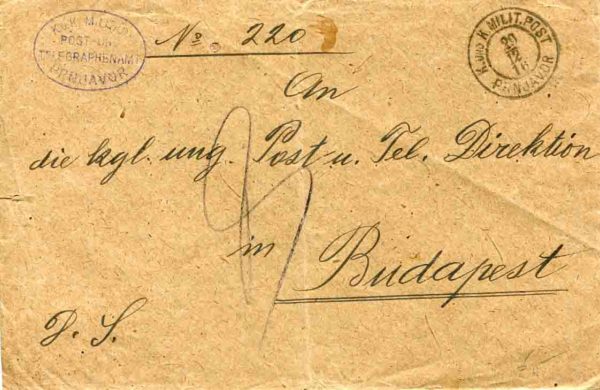 K.u.K. MILITÄR-
POST-UND
TELEGRAPHENAMT
PRNJAVOR
No 220
K. UND K. MILIT. POST
20
16
PRNJAVOR
An
die kgl. ung. Post u. Tel. Direktion
in Budapest
D. S.